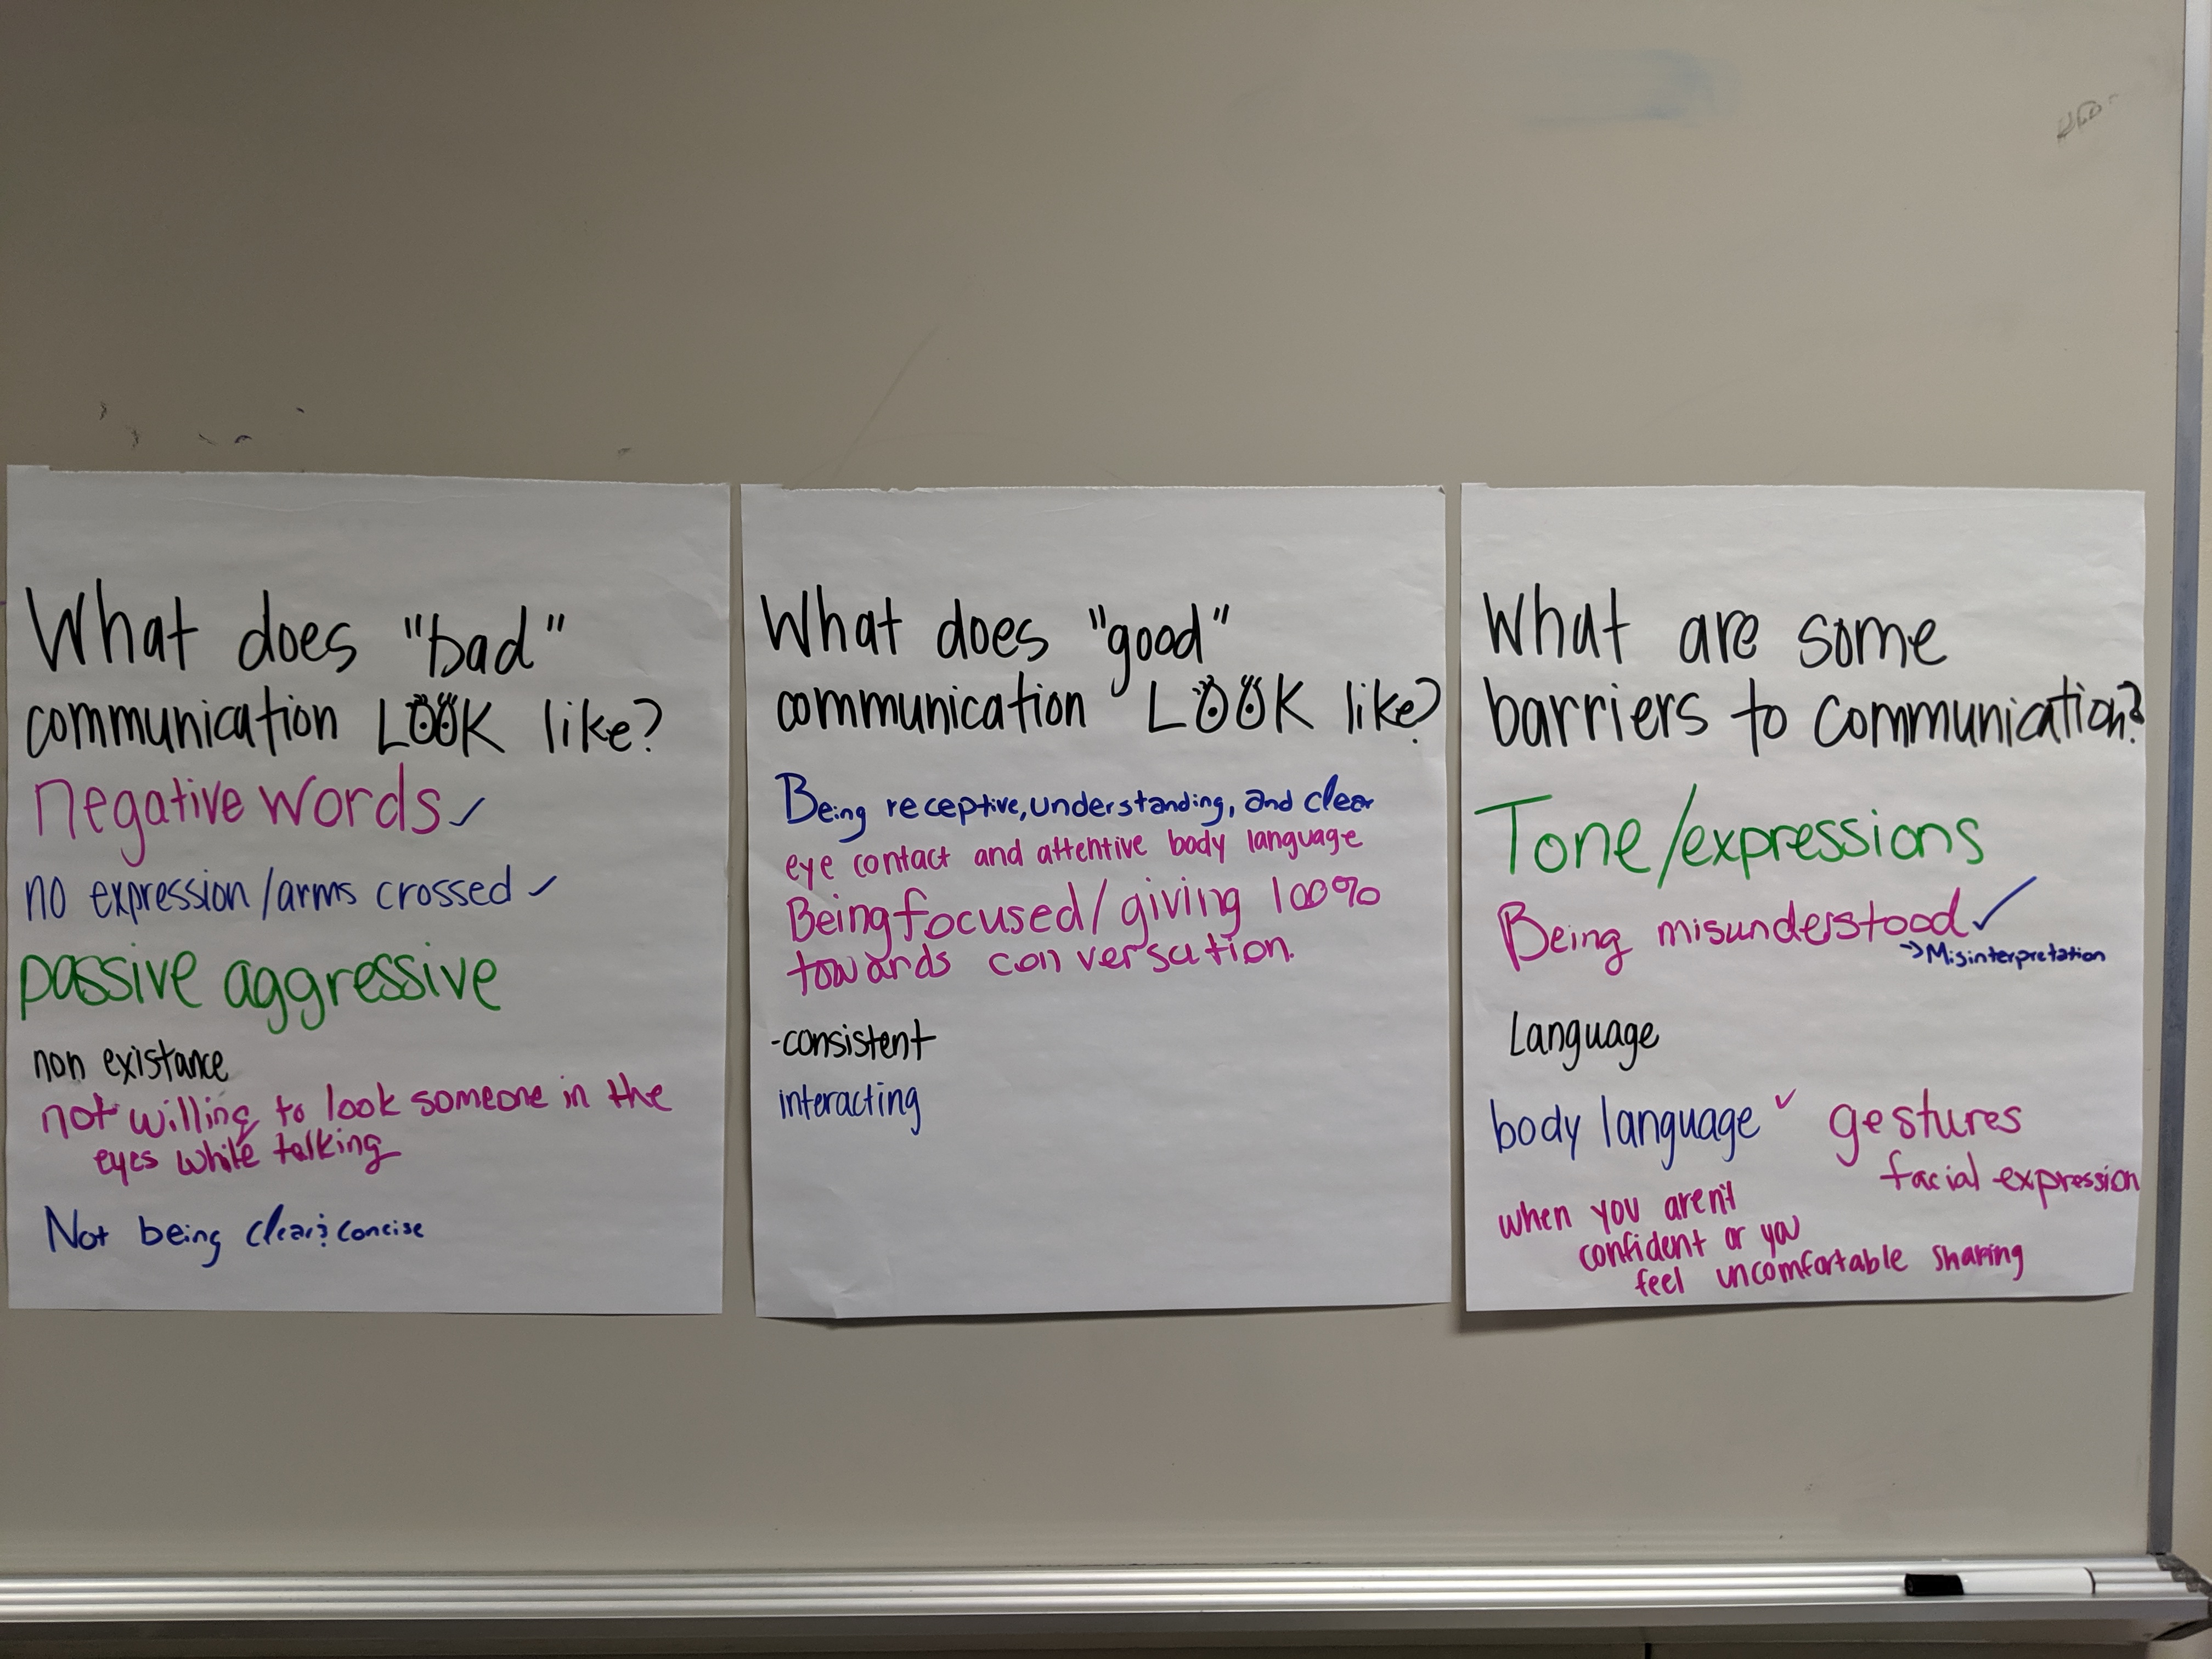 What does "bad"
communication LOOK like?
negative words ✓
no expression/arms crossed ✓
passive aggressive
non existance
not willing to look someone in the
eyes while talking
Not being clear & concise
What does "good"
communication LOOK like?
Being receptive, understanding, and clear
eye contact and attentive body language
Being focused/giving 100%
towards conversation.
-consistent
interacting
What are some
barriers to communication?
Tone/expressions
Being misunderstood ✓
→Misinterpretation
Language
body language ✓ gestures
facial expression
when you aren't
confident or you
feel uncomfortable sharing